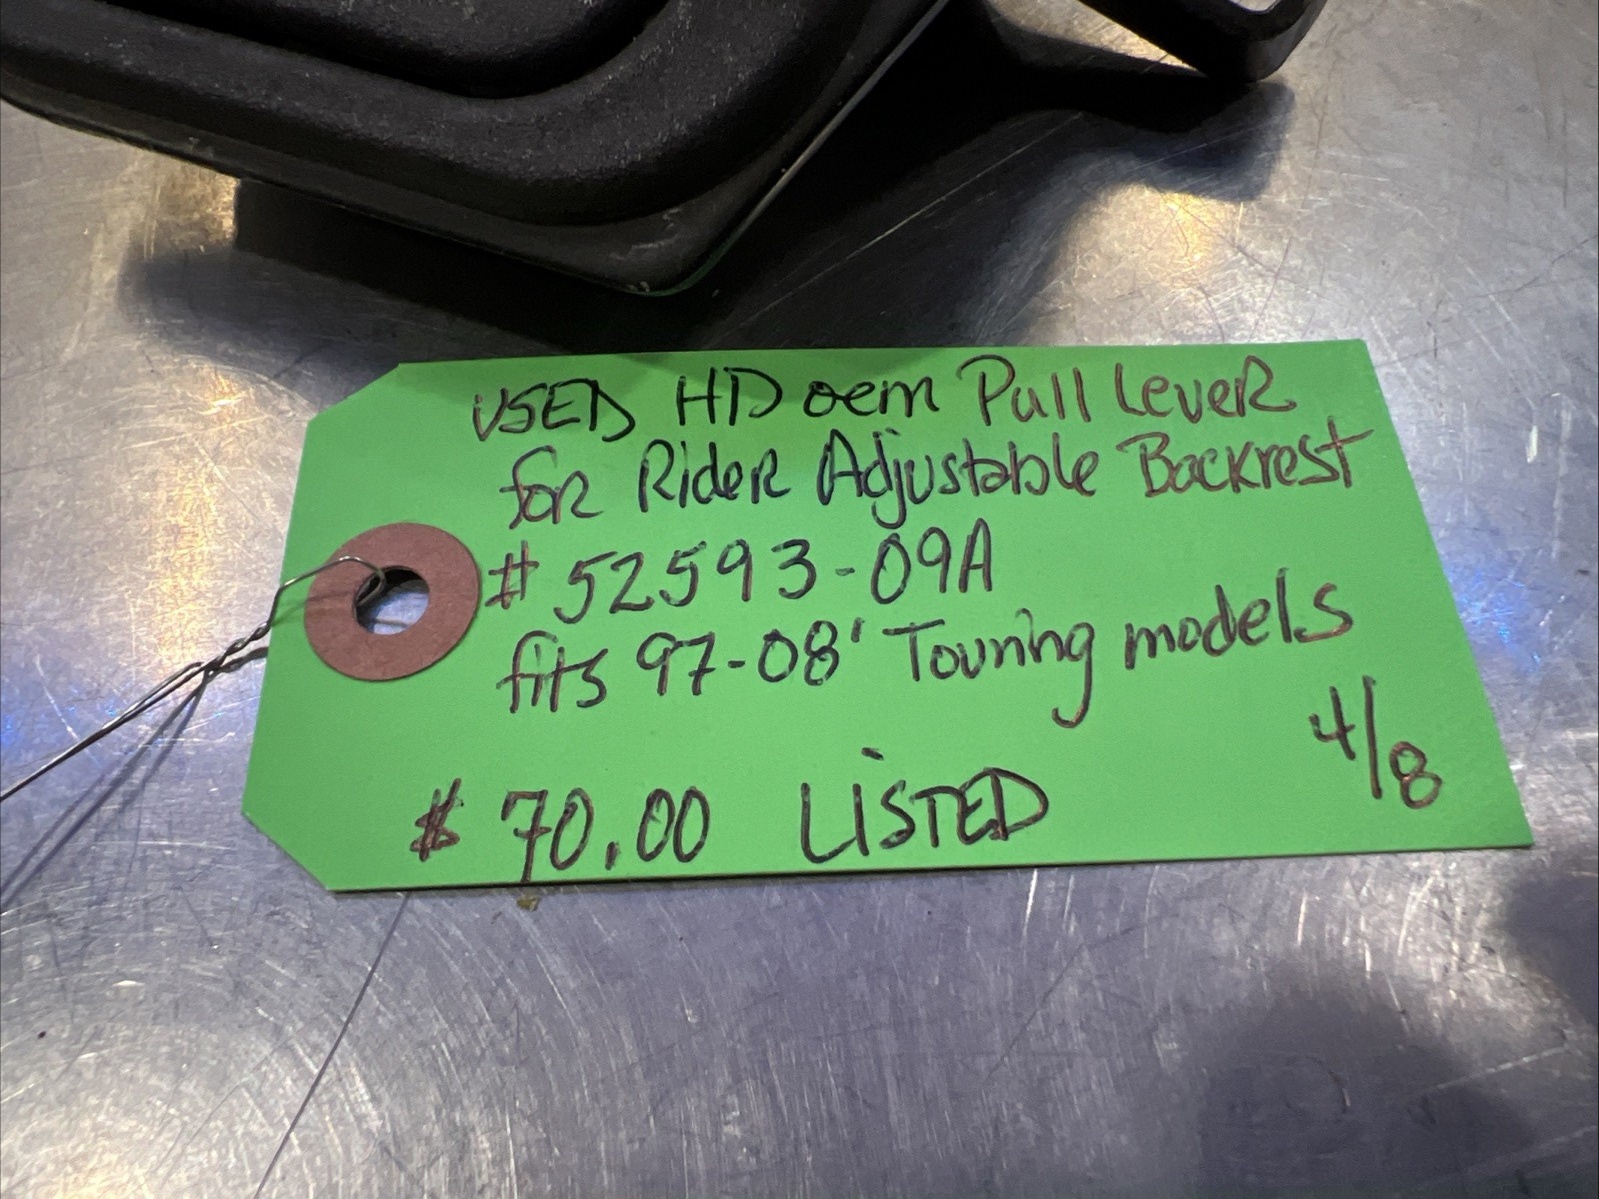 USED HD oem Pull Lever
for Rider Adjustable Backrest
# 52593-09A
fits 97-08' Touring models
4/8
$ 70.00 LiSTED